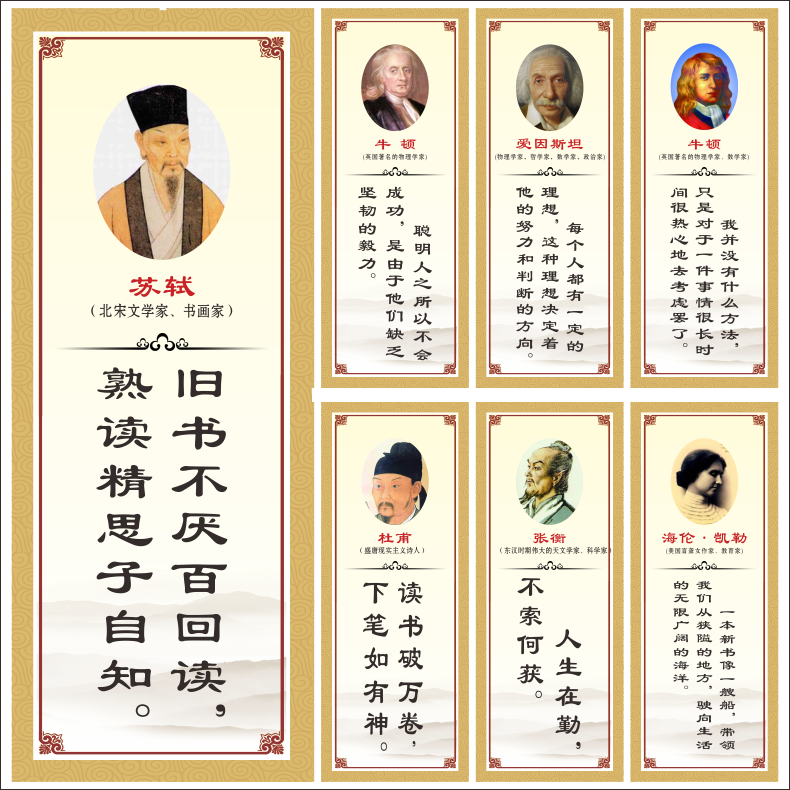 苏轼
(北宋文学家、书画家)
旧书不厌百回读,
熟读精思子自知。
牛 顿
(英国著名的物理学家)
聪明人之所以不会
成功,是由于他们缺乏
坚韧的毅力。
爱因斯坦
(物理学家,哲学家,数学家,政治家)
每个人都有一定的
理想,这种理想决定着
他的努力和判断的方向。
牛顿
(英国著名的物理学家、数学家)
我并没有什么方法,
只是对于一件事情很长时
间很热心地去考虑罢了。
杜甫
(盛唐现实主义诗人)
读书破万卷,
下笔如有神。
张衡
(东汉时期伟大的天文学家、科学家)
人生在勤,
不索何获。
海伦·凯勒
(美国盲聋女作家、教育家)
一本新书像一艘船,带领
我们从狭隘的地方,驶向生活
的无限广阔的海洋。